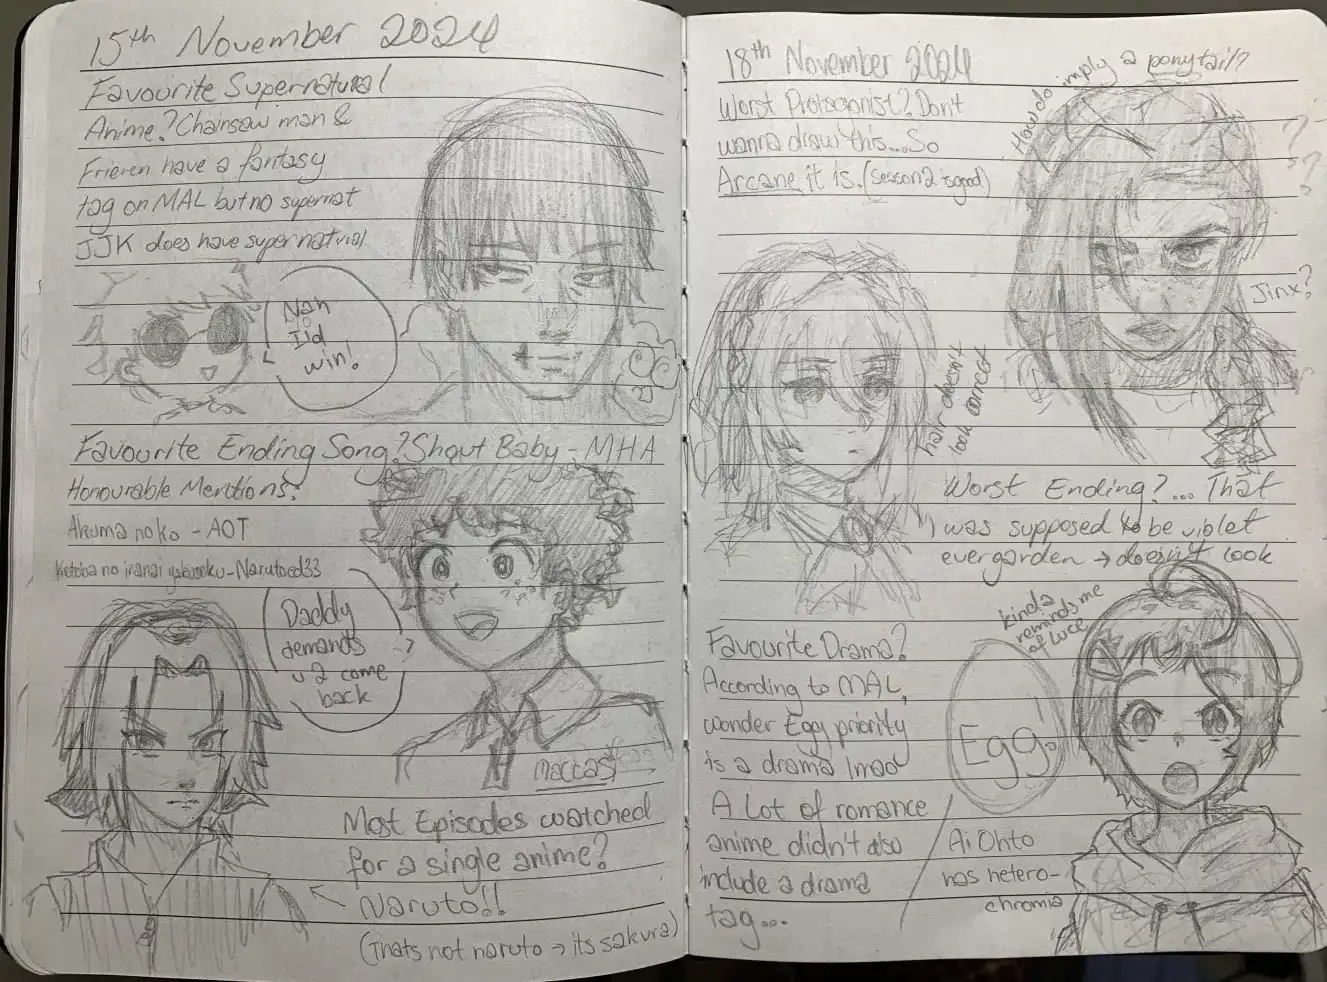 15th November 2024
Favourite Supernatural
Anime? Chainsaw man &
Frieren have a fantasy
tag on MAL but no supernat
JJK does have supernatural
Nah
I'd
win!
Favourite Ending Song? Shout Baby - MHA
Honourable Mentions?
Akuma no ko - AOT
no iranai yakusoku - Naruto ed33
Daddy
demands
u 2 come
back
maccas
Most Episodes watched
for a single anime?
Naruto!!
(Thats not naruto → its sakura)
18th November 2024
Worst Protagonist? Don't
wanna draw this... So
Arcane it is. (season 2 is good)
How do imply a ponytail?
Jinx?
hair doesn't
look correct
Worst Ending?... That
was supposed to be violet
evergarden → doesn't look
Favourite Drama?
According to MAL,
wonder Egg priority
is a drama lmao
A Lot of romance
anime didn't also
include a drama
tag...
kinda
reminds me
of Luce
Egg!
Ai Ohto
has hetero-
chromia